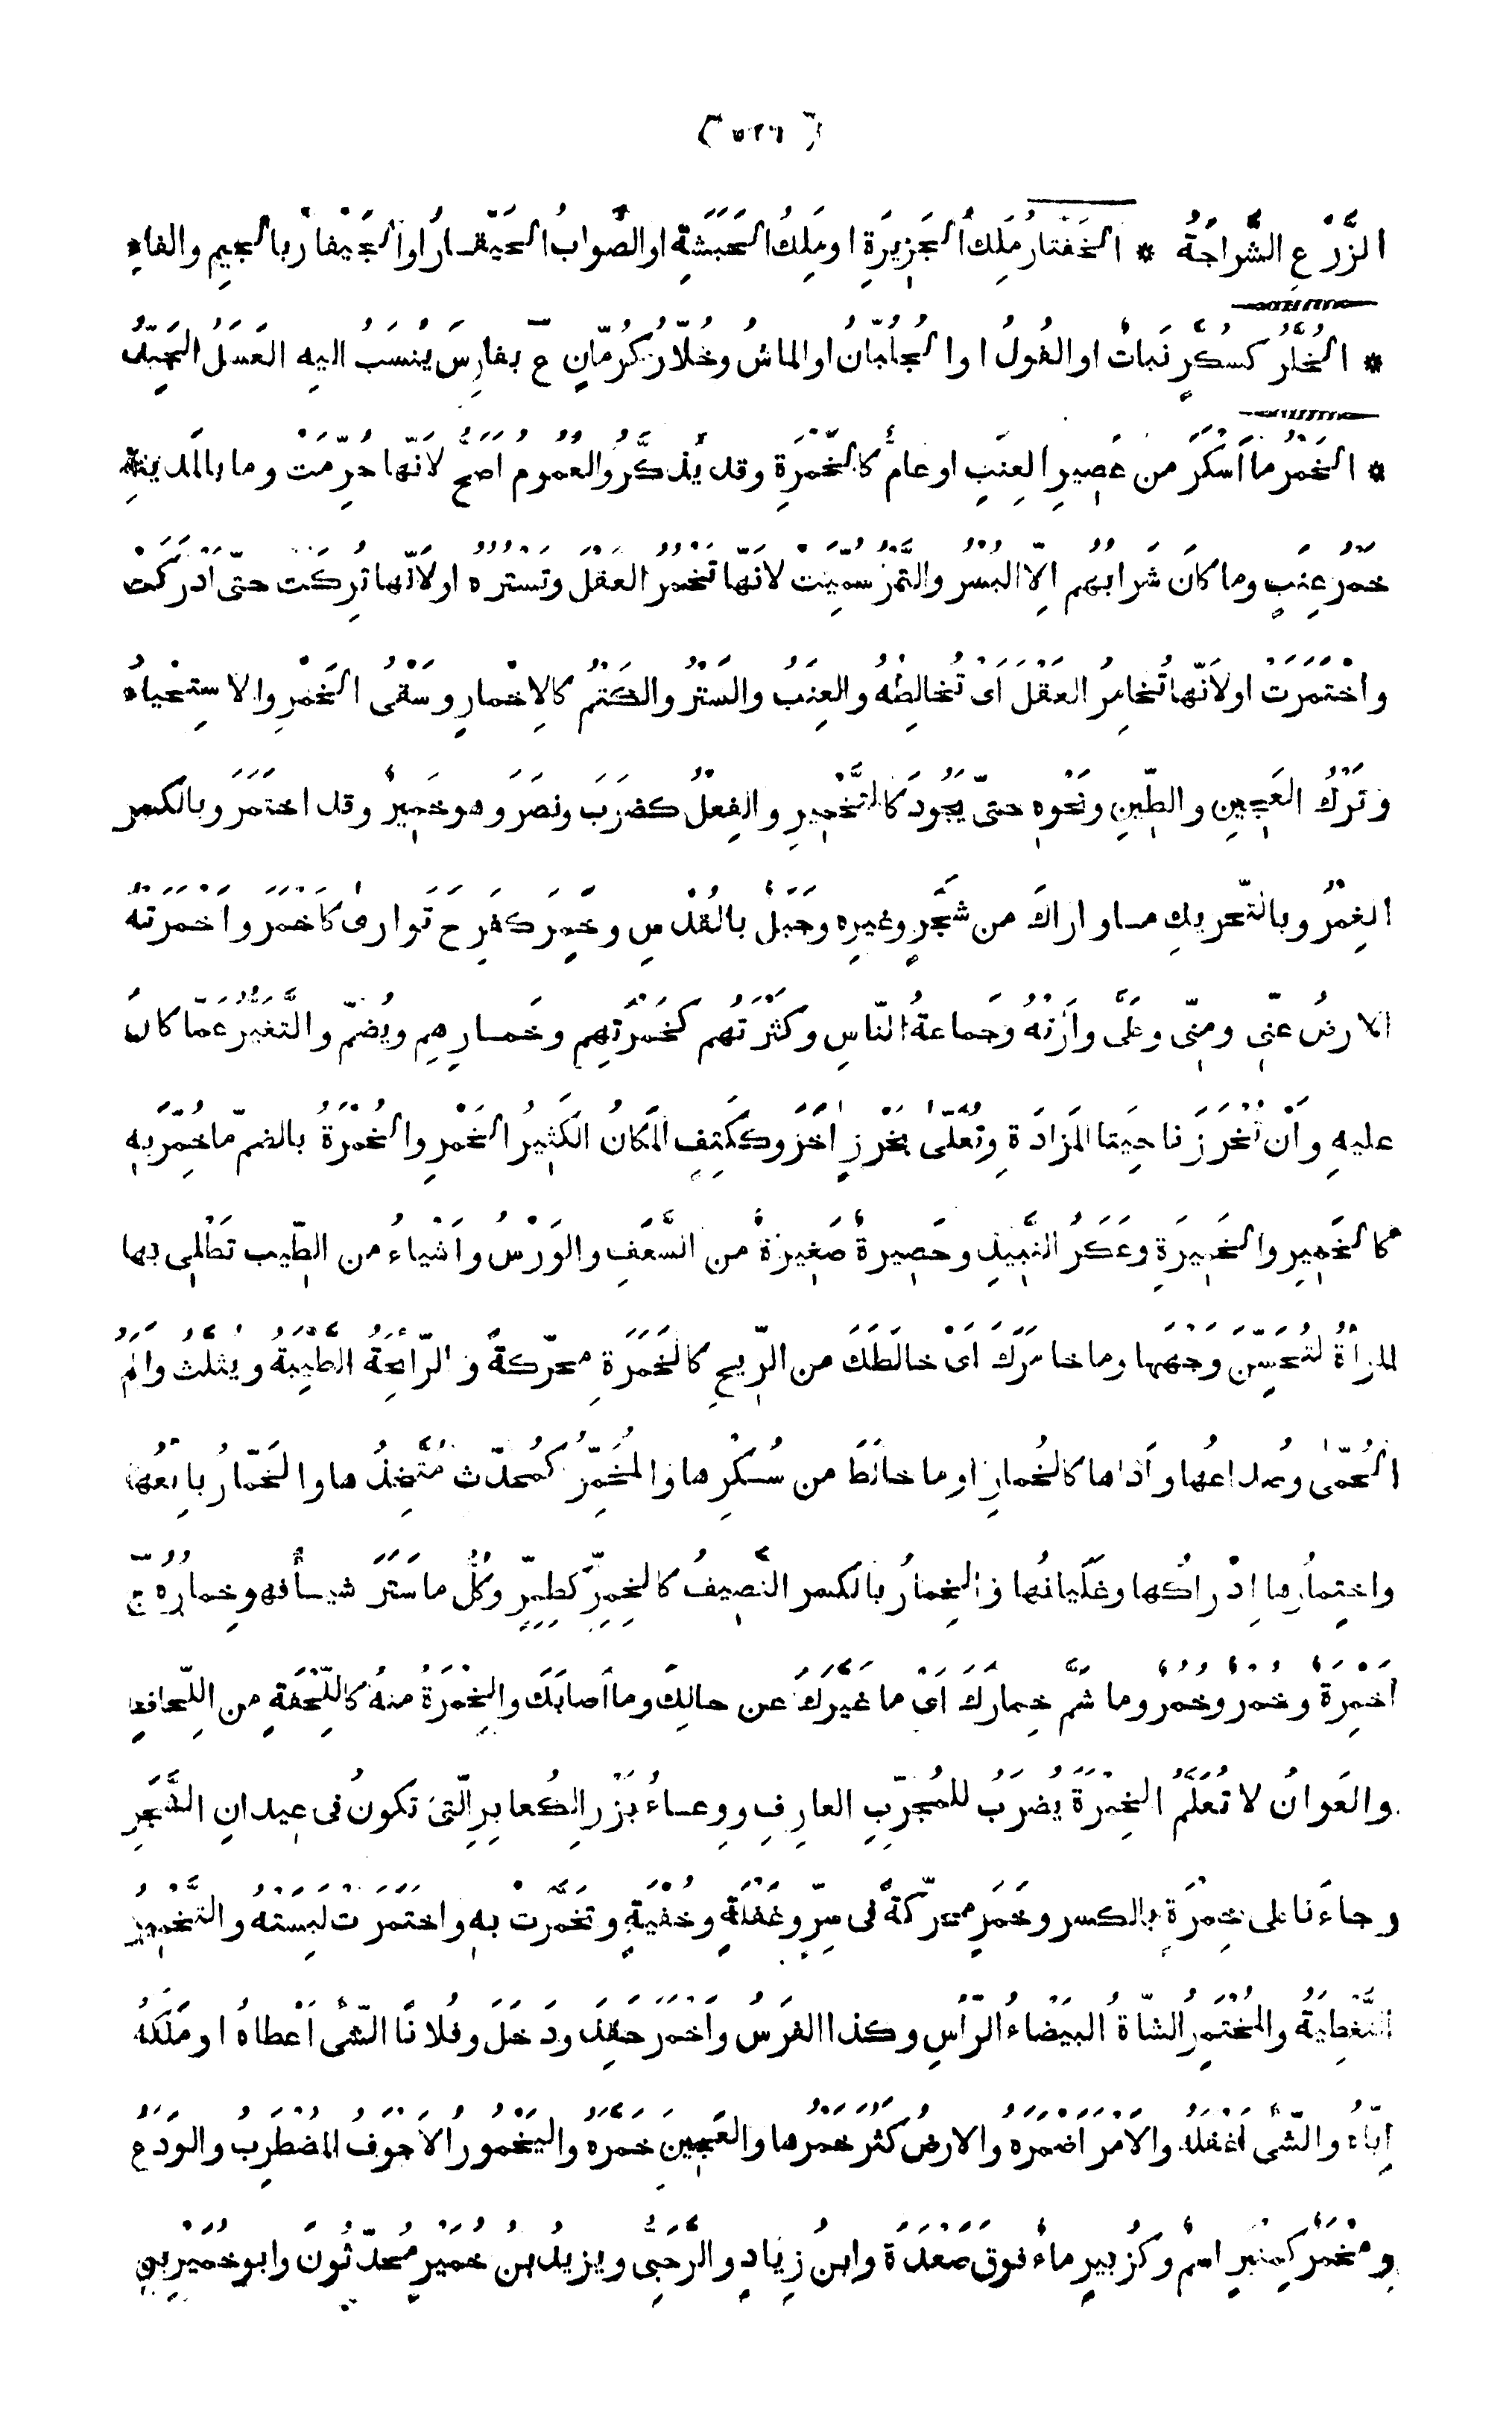 (٥٢٦)
الزَّرْعِ الشَّرَاجَةُ * الخَفْتارُ مَلِكُ الجَزِيرَةِ او مَلِكُ الحَبَشَةِ او الصَّوابُ الحَيْقَارُ اوالجَيْفارُ بالجِيمِ والفاءِ
* الخُلَّرُ كسُكَّرٍ نَباتٌ او الفُولُ اوا الجُلُبّانُ او الماشُ وخُلّارُ كرُمّانٍ ع بفارِسَ يُنْسَبُ اليه العَسَلُ الجَيِّدُ
* الخَمْرُ ما اَسْكَرَ من عَصِيرِ العِنَبِ او عامٌّ كالخَمْرَةِ وقد يُذَكَّرُ والعموم اَصَحُّ لانّها حُرِّمَتْ وما بالمدينةِ
خَمْرُ عِنَبٍ وما كانَ شَرابُهُم اِلّا البُسْرُ والتَّمْرُ سُمِّيَتْ لاَنّها تَخْمُرُ العَقْلَ وتَسْتُرُه او لاَنّها تُرِكَتْ حتى اَدْرَكَتْ
واخْتَمَرَتْ او لاَنّها تُخامِرُ العَقْلَ اى تُخالِطُهُ والعِنَبُ والسَّتْرُ والكَتْمُ كالاِخْمارِ وسَقْىُ الخَمْرِ والاسْتِحْياءُ
وتَرْكُ العَجِينِ والطِّينِ ونَحْوِهِ حتى يَجُودَ كالتَّخْمِيرِ والفِعْلُ كضَرَبَ ونصَرَ وهو خَمِيرٌ وقد اختمر وبالكسر
الغِمْرُ وبالتّحريكِ ما واراكَ من شَجَرٍ وغيرِهِ وجَبَلٌ بالقُدْسِ وخَمِرَ كفَرِحَ تَوارىٰ كاَخْمَرَ واَخْمَرَتْهُ
الارضُ عنّى ومِنّى وعَلَىَّ وارَتْهُ وجَماعةُ النّاسِ وكَثْرَتُهُم كخَمْرَتِهِم وخَمارِهِم ويُضَمُّ والتَّغَيُّرُ عَمّا كانَ
عليهِ واَنْ تُخْرَزَ ناحِيَتا المَزادَةِ وتُعَلّى بخَرْزٍ آخَرَ وككَتِفٍ المَكانُ الكَثِيرُ الخَمْرِ والخُمْرَةُ بالضمّ ما خُمِّرَ بهِ
كالخَمِيرِ والخَمِيرَةِ وعَكَرُ النَّبِيذِ وحَصِيرةٌ صَغِيرَةٌ من السَّعَفِ والوَرْسُ واَشْياءُ من الطِّيبِ تَطَّلِى بها
المرأةُ لتُحَسِّنَ وَجْهَها وما خامَرَكَ اَىْ خالَطَكَ من الرِّيحِ كالخَمَرَةِ محرّكةً و الرّائحَةُ الطَّيِّبَةُ ويثلث واَلَمُ
الحُمّىٰ وصُداعُها واَذاها كالخُمارِ او ما خالَطَ من سُكْرِها والمُخَمِّرُ كمُحدِّثٍ مُتَّخِذُها والخَمّارُ بائعُها
واختِمارُها اِدْراكُها وغَلَيانُها والخِمارُ بالكسر النَّصِيفُ كالخِمِرِّ كطِمِرٍّ وكُلُّ ما سَتَرَ شيئًا فهو خِمارُهُ ج
اَخْمِرَةٌ وخُمْرٌ وخُمُرٌ وما شَمَّ خِمارَكَ اَىْ ما غَيَّرَكَ عن حالِكَ وما اَصابَكَ والخِمْرَةُ منه كاللِّحْفَةِ من اللِّحافِ
والعَوانُ لا تُعَلَّمُ الخِمْرَةَ يُضْرَبُ للمُجَرِّبِ العارِفِ ووِعاءُ بَزْرِ الكَعابِرِ الّتى تكونُ فى عِيدانِ الشَّجَرِ
وجاءَنا على خِمْرَةٍ بالكسر وخَمَرٍ محرّكةً فى سِرٍّ وغَفْلَةٍ وخُفْيَةٍ وتَخَمَّرَتْ بهِ واخْتَمَرَتْ لَبِسَتْهُ والتَّخْمِيرُ
التَّغْطِيَةُ والمُخْتَمِرَةُ الشّاةُ البَيْضاءُ الرّاسِ وكذا الفَرَسُ واَخْمَرَ حَقَدَ ودَخَلَ وفُلانًا الشَّىْءَ اَعْطاهُ او مَلَّكَهُ
اِيّاهُ والشَّىْءَ اَغْفَلَهُ والاَمْرَ اَضْمَرَهُ والارضُ كَثُرَ خَمَرُها والعَجِينَ خَمَرَه واليَخْمورُ الاَجْوَفُ المُضْطَرِبُ والوَدَعُ
ومِخْمَرٌ كمِنْبَرٍ اسمٌ وكزُبَيْرٍ ماءٌ فوقَ صَعْدَةَ وابنُ زِيادٍ والرَّحَبِىُّ ويزيدُ بنُ خُمَيْرٍ مُحدِّثُونَ وابو خُمَيْرِ بنِ